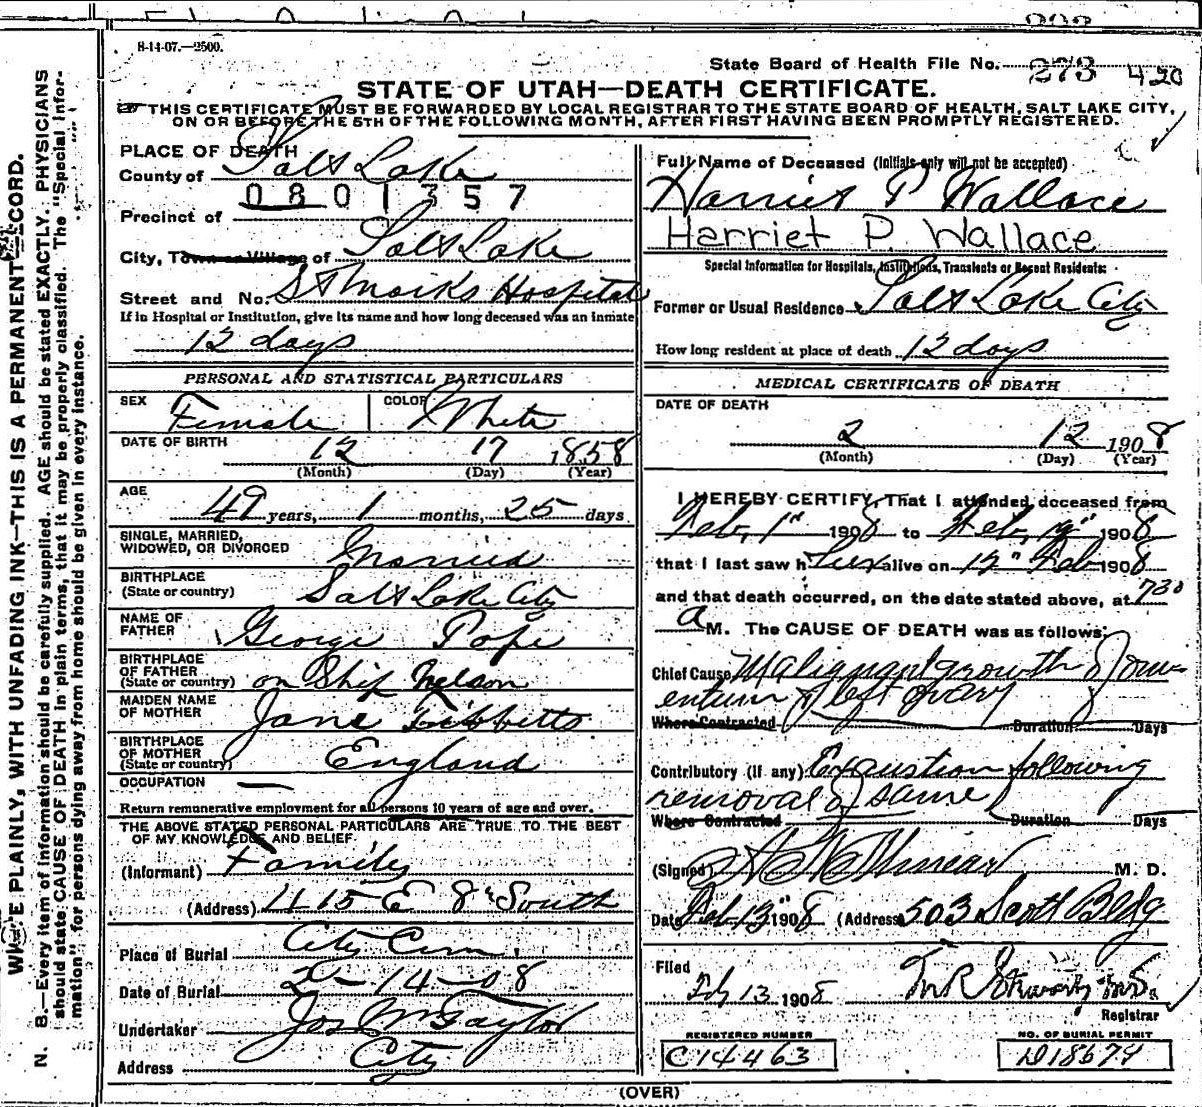 8-14-07.—2500.
State Board of Health File No. 273 420
STATE OF UTAH—DEATH CERTIFICATE.
THIS CERTIFICATE MUST BE FORWARDED BY LOCAL REGISTRAR TO THE STATE BOARD OF HEALTH, SALT LAKE CITY,
ON OR BEFORE THE 5TH OF THE FOLLOWING MONTH, AFTER FIRST HAVING BEEN PROMPTLY REGISTERED.
PLACE OF DEATH
County of Salt Lake
0801357
Precinct of
City, Town or Village of Salt Lake
Street and No. St Marks Hospital
If in Hospital or Institution, give its name and how long deceased was an inmate
12 days
PERSONAL AND STATISTICAL PARTICULARS
SEX Female COLOR White
DATE OF BIRTH 12 17 1858
(Month) (Day) (Year)
AGE 49 years, 1 months, 25 days
SINGLE, MARRIED,
WIDOWED, OR DIVORCED Married
BIRTHPLACE
(State or country) Salt Lake City
NAME OF
FATHER George Pope
BIRTHPLACE
OF FATHER
(State or country) on Ship Nelson
MAIDEN NAME
OF MOTHER Jane Tibbetts
BIRTHPLACE
OF MOTHER
(State or country) England
OCCUPATION —
Return remunerative employment for all persons 10 years of age and over.
THE ABOVE STATED PERSONAL PARTICULARS ARE TRUE TO THE BEST
OF MY KNOWLEDGE AND BELIEF.
(Informant) Family
(Address) 1115 E 8" South
Place of Burial City Cem.
Date of Burial 2-14-08
Undertaker Jos Wm Taylor
Address City
Full Name of Deceased (Initials only will not be accepted)
Harriet P Wallace
Harriet P. Wallace
Special Information for Hospitals, Institutions, Transients or Recent Residents:
Former or Usual Residence Salt Lake City
How long resident at place of death 12 days
MEDICAL CERTIFICATE OF DEATH
DATE OF DEATH
2 12 1908
(Month) (Day) (Year)
I HEREBY CERTIFY, That I attended deceased from
Feb, 1" 1908 to Feb, 12" 1908
that I last saw her alive on 12" Feb 1908
and that death occurred, on the date stated above, at 730
a M. The CAUSE OF DEATH was as follows:
Chief Cause Malignant growth of om-
entum & left ovary
Where Contracted Duration Days
Contributory (if any) Exaustion following
removal of same
Where Contracted Duration Days
(Signed) M. D.
Date Feb 13" 1908 (Address) 503 Scott Bldg
Filed
Feb 13 1908
Registrar
REGISTERED NUMBER
C14463
NO. OF BURIAL PERMIT
D18679
(OVER)
WRITE PLAINLY, WITH UNFADING INK—THIS IS A PERMANENT RECORD.
N. B.—Every item of information should be carefully supplied. AGE should be stated EXACTLY. PHYSICIANS
should state CAUSE OF DEATH in plain terms, that it may be properly classified. The "Special Infor-
mation" for persons dying away from home should be given in every instance.